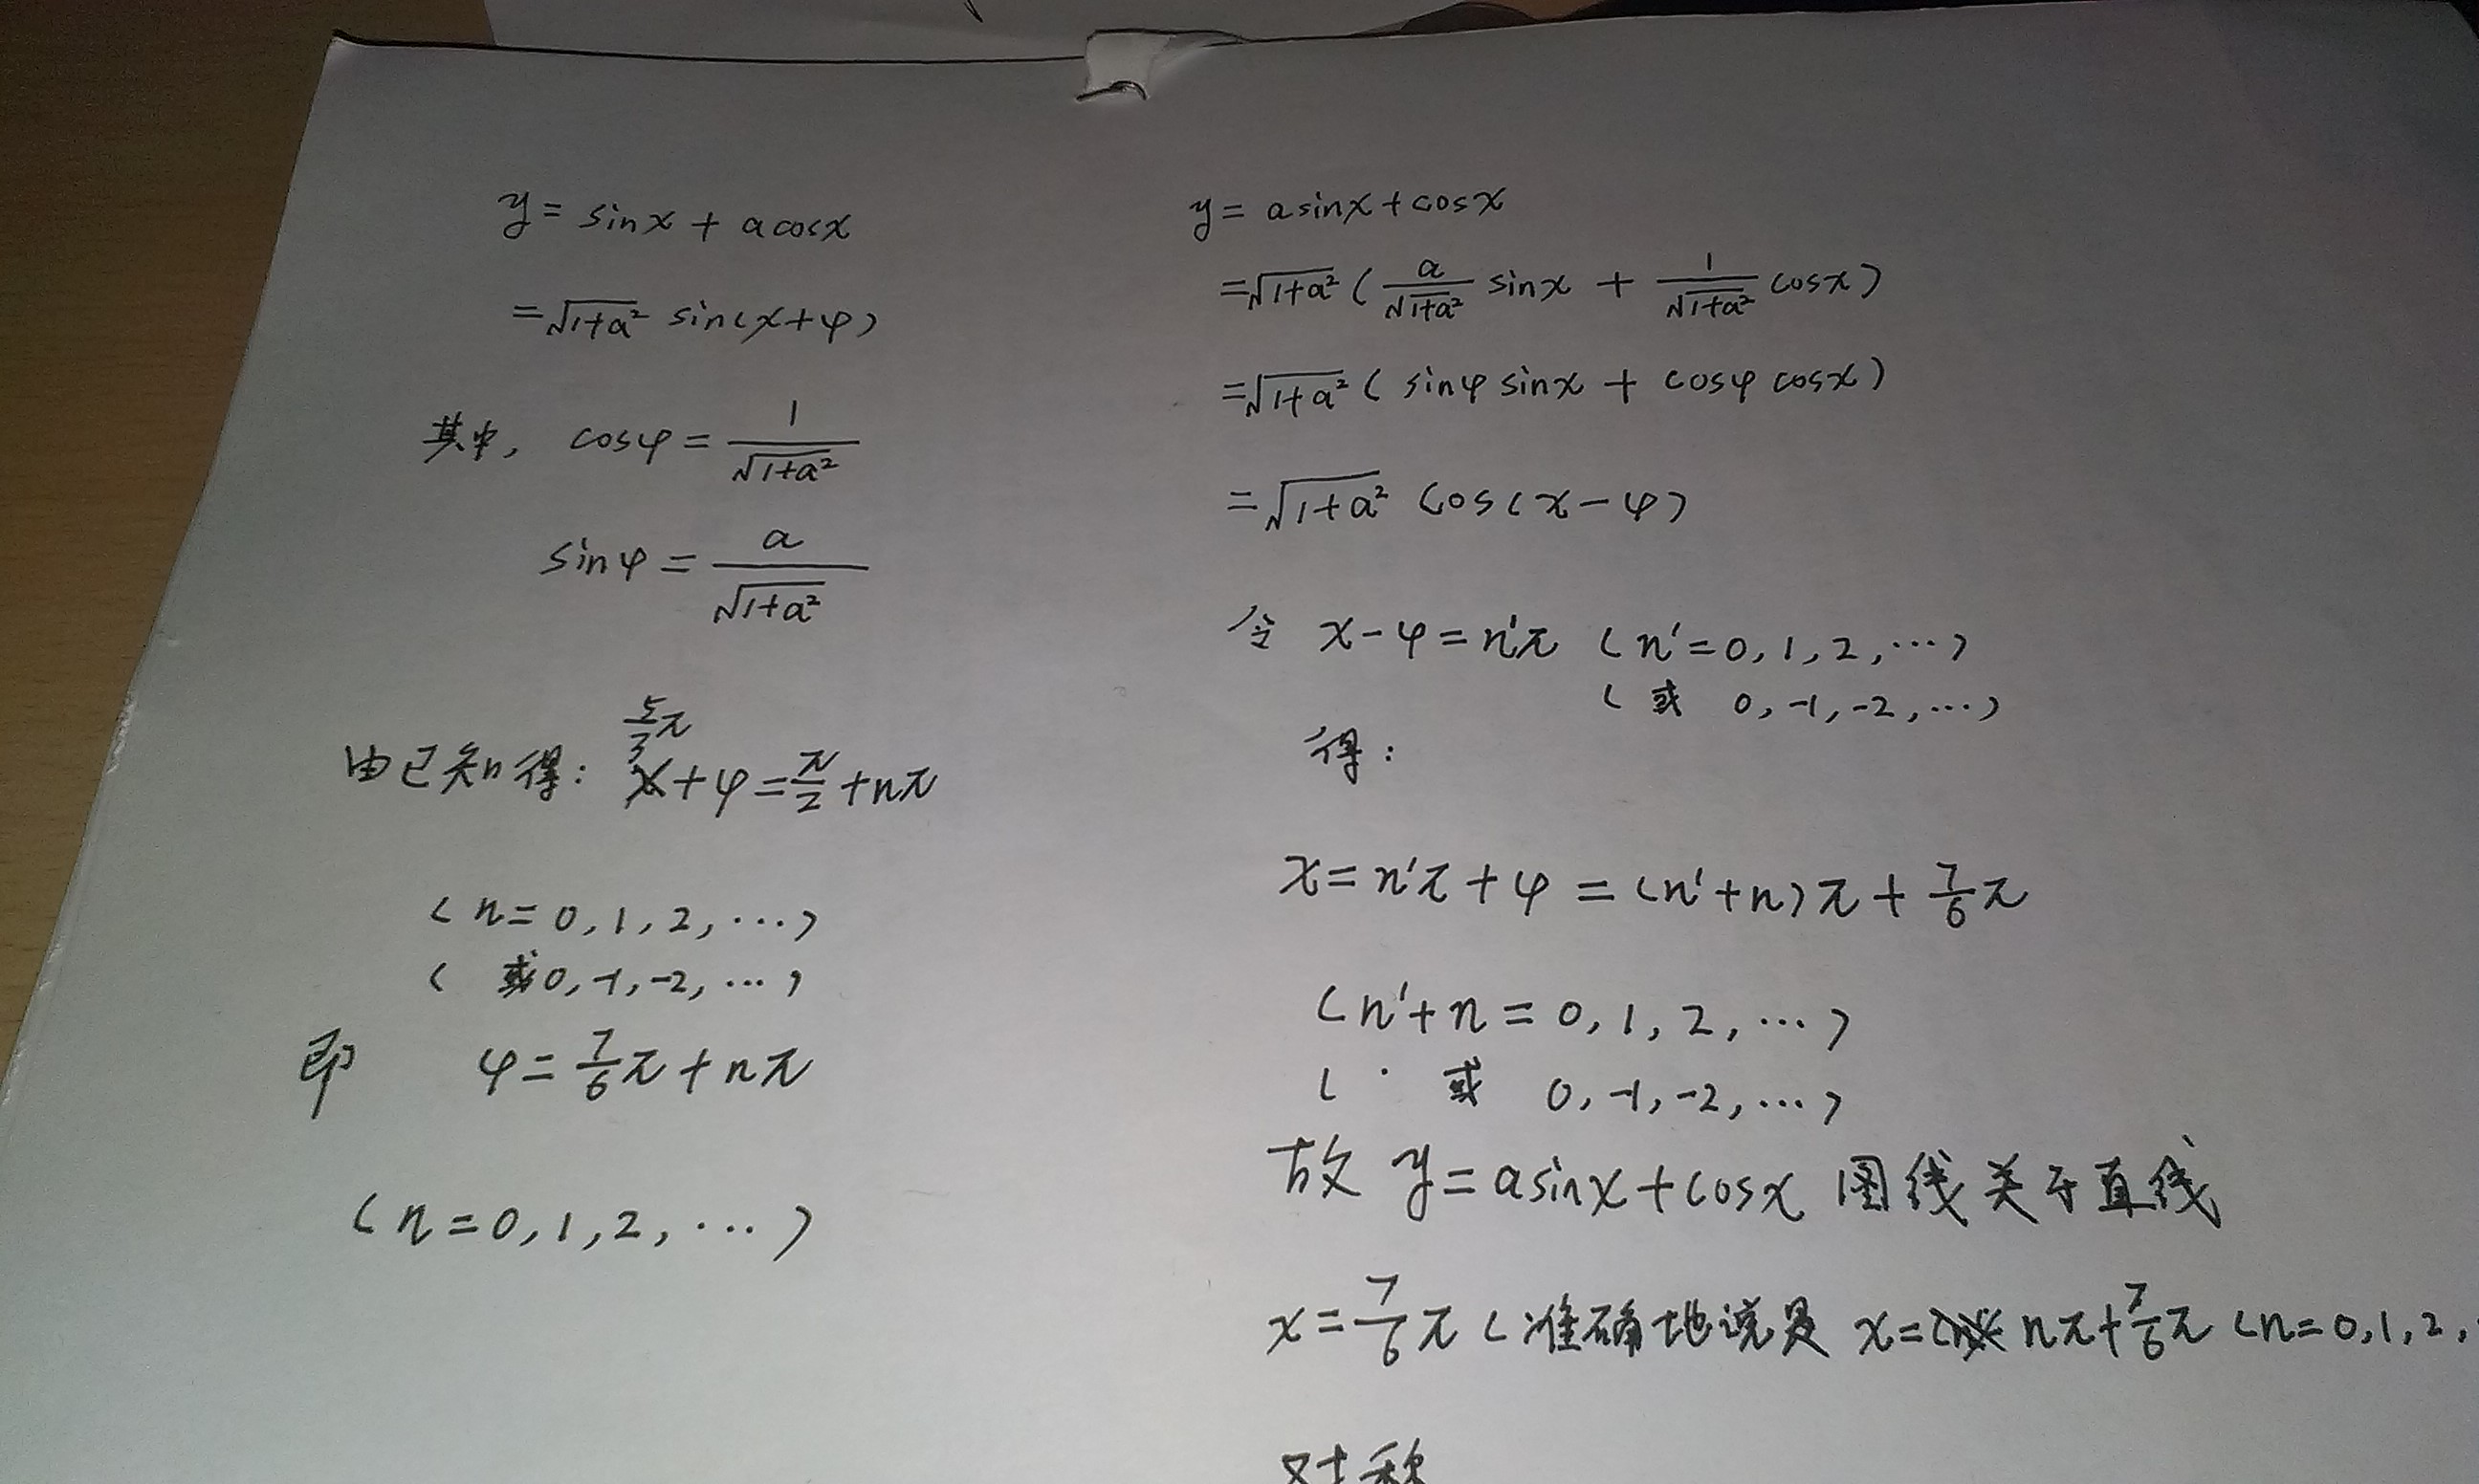 y = sinx + acosx
= √(1+a²) sin(x+φ)
其中, cosφ = 1/√(1+a²)
sinφ = a/√(1+a²)
由已知得: 5/3π + φ = π/2 + nπ
( n = 0, 1, 2, ⋯ )
( 或 0, -1, -2, ⋯ )
即 φ = 7/6π + nπ
( n = 0, 1, 2, ⋯ )
y = asinx + cosx
= √(1+a²) ( a/√(1+a²) sinx + 1/√(1+a²) cosx )
= √(1+a²) ( sinφ sinx + cosφ cosx )
= √(1+a²) cos( x - φ )
令 x - φ = n'π ( n' = 0, 1, 2, ⋯ )
( 或 0, -1, -2, ⋯ )
得:
x = n'π + φ = (n'+n)π + 7/6π
( n'+n = 0, 1, 2, ⋯ )
( 或 0, -1, -2, ⋯ )
故 y = asinx + cosx 图线关于直线
x = 7/6π ( 准确地说是 x = nπ + 7/6π ( n = 0, 1, 2,
对称